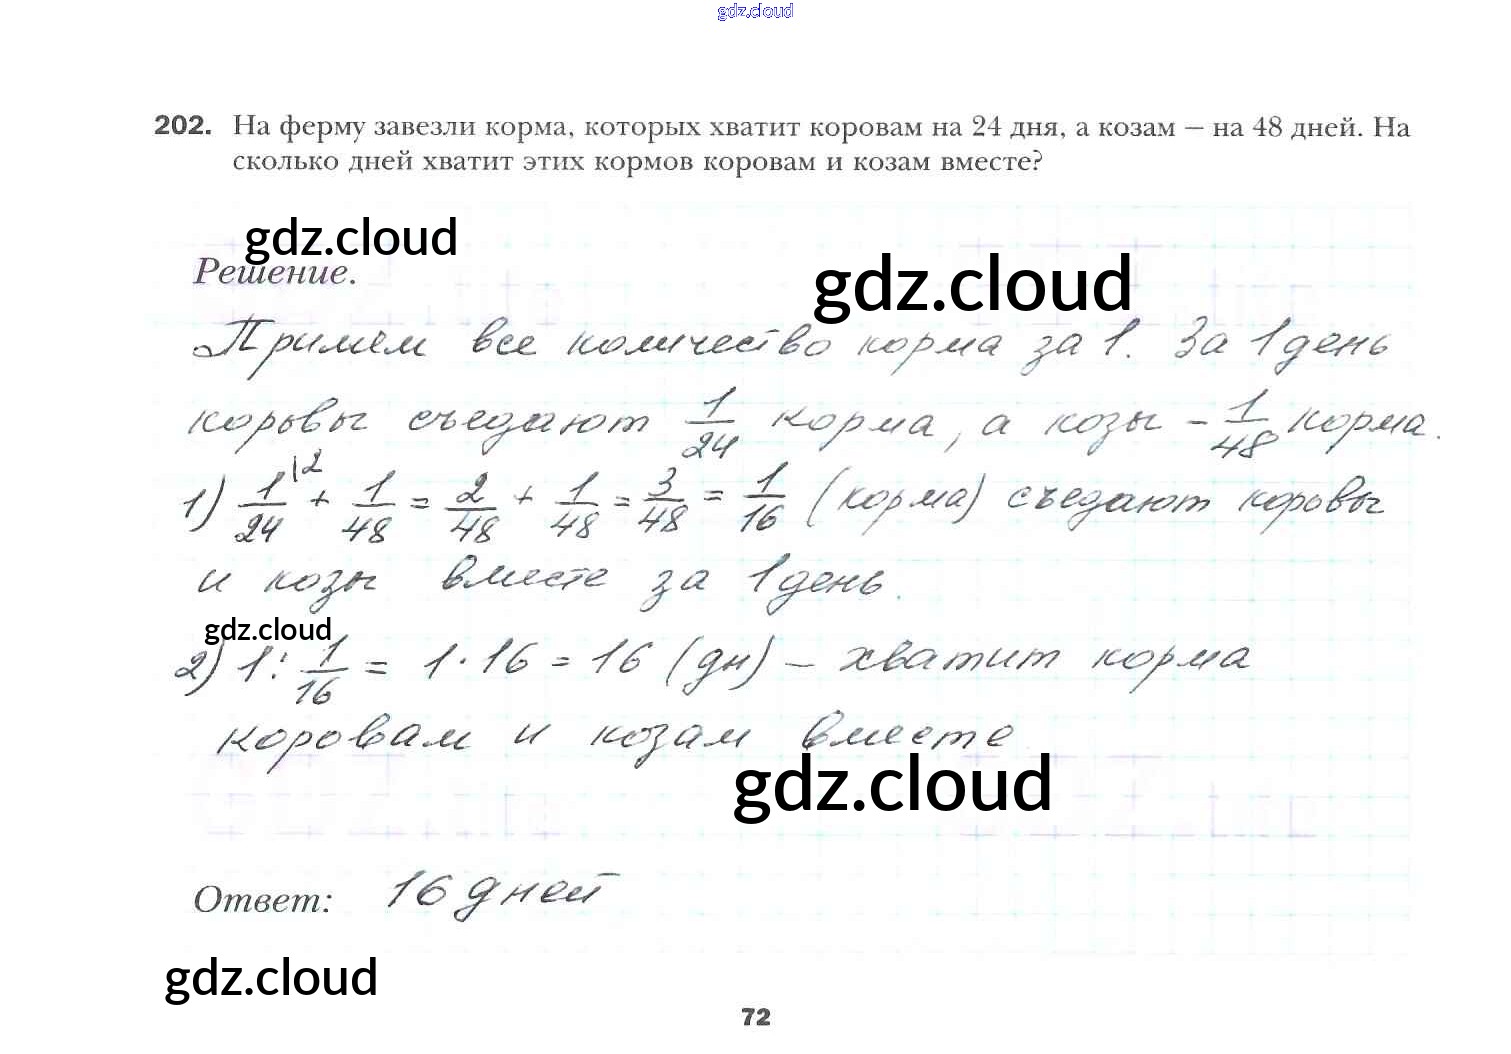 gdz.cloud
202. На ферму завезли корма, которых хватит коровам на 24 дня, а козам – на 48 дней. На
сколько дней хватит этих кормов коровам и козам вместе?
gdz.cloud
gdz.cloud
Решение.
Примем все количество корма за 1. За 1 день
коровы съедают 1/24 корма, а козы - 1/48 корма.
1) 1/24 |2 + 1/48 = 2/48 + 1/48 = 3/48 = 1/16 (корма) съедают коровы
и козы вместе за 1 день.
gdz.cloud
2) 1 : 1/16 = 1 · 16 = 16 (дн) – хватит корма
коровам и козам вместе
gdz.cloud
Ответ: 16 дней
gdz.cloud
72